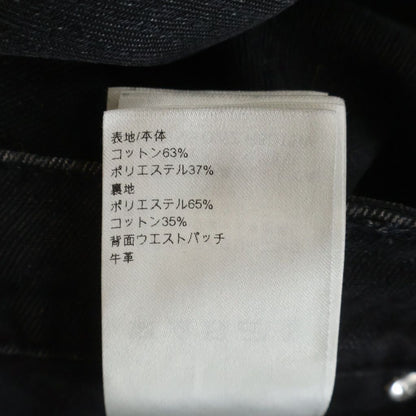 表地/本体
コットン63%
ポリエステル37%
裏地
ポリエステル65%
コットン35%
背面ウエストパッチ
牛革